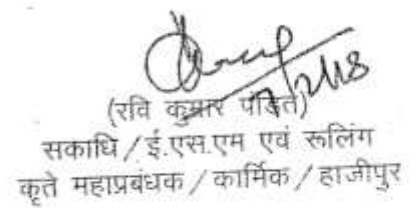 (रवि कुमार पंडित)
सकाधि/ई.एस.एम एवं रूलिंग
कृते महाप्रबंधक/कार्मिक/हाजीपुर